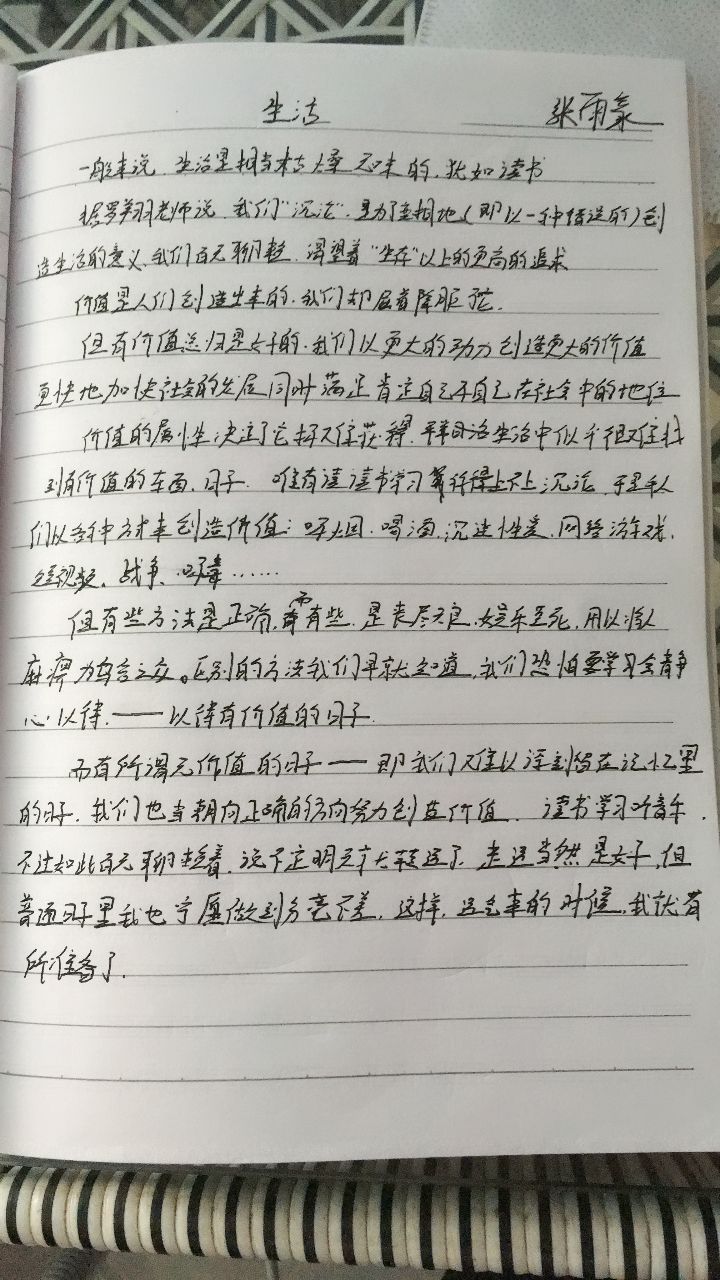 生活 张雨豪
一般来说,生活是相当枯燥无味的,犹如读书
据罗翔老师说,我们"沉沦",是为了变相地(即以一种错误的)创
造生活的意义,我们百无聊赖,渴望着"生存"以上的更高的追求
价值是人们创造出来的,我们却屈着降服它.
但有价值总归是好的,我们以更大的动力创造更大的价值
更快地加快社会的发展同时满足肯定自己和自己在社会中的地位
价值的属性决定了它极难获得,平日活生活中似乎很难找
到有价值的东西,日子.唯有读书学习算得上不上沉沦,于是乎人
们以各种方式来创造价值:吸烟,喝酒,沉迷性爱,网络游戏,
短视频,战争,吸毒……
但有些方法是正确,而有些,是丧尽天良,娱乐至死,用以将人
麻痹为乌合之众。区别的方法我们早就知道,我们恐怕要学习会静
心以待.——以待有价值的日子.
而有所谓无价值的日子——即我们难以深刻留在记忆里
的日子,我们也当朝向正确的方向努力创造价值,读书学习听音乐,
不过如此百无聊赖着,说不定明天就转运了,走运当然是好,但
普通日子里我也宁愿做到分毫不差,这样,运气来的时候,我就有
所准备了.